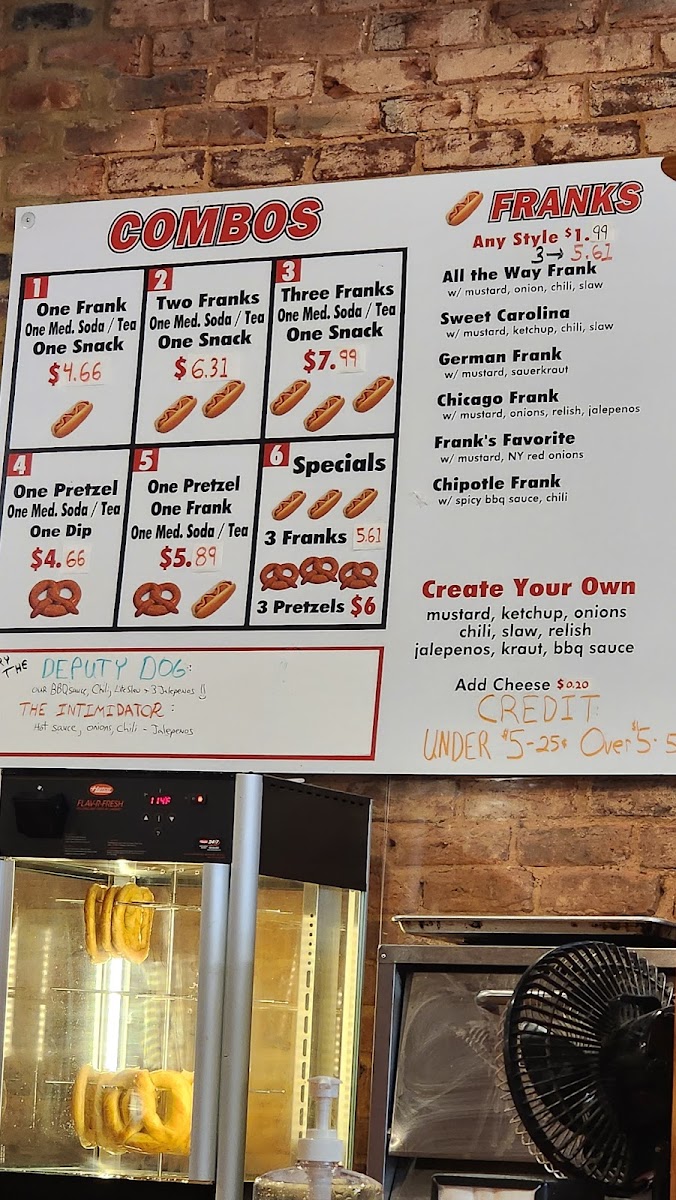 COMBOS
1
One Frank
One Med. Soda / Tea
One Snack
$4.66
2
Two Franks
One Med. Soda / Tea
One Snack
$6.31
3
Three Franks
One Med. Soda / Tea
One Snack
$7.99
4
One Pretzel
One Med. Soda / Tea
One Dip
$4.66
5
One Pretzel
One Frank
One Med. Soda / Tea
$5.89
6
Specials
3 Franks 5.61
3 Pretzels $6
THE DEPUTY DOG:
our BBQ sauce, Chili, Lite Slaw + 3 Jalepenos !!
THE INTIMIDATOR:
Hot sauce, onions, Chili - Jalepenos
FRANKS
Any Style $1.99
3→ 5.61
All the Way Frank
w/ mustard, onion, chili, slaw
Sweet Carolina
w/ mustard, ketchup, chili, slaw
German Frank
w/ mustard, sauerkraut
Chicago Frank
w/ mustard, onions, relish, jalepenos
Frank's Favorite
w/ mustard, NY red onions
Chipotle Frank
w/ spicy bbq sauce, chili
Create Your Own
mustard, ketchup, onions
chili, slaw, relish
jalepenos, kraut, bbq sauce
Add Cheese $0.20
CREDIT
UNDER $5-25¢ Over $5. 5
FLAV-R-FRESH